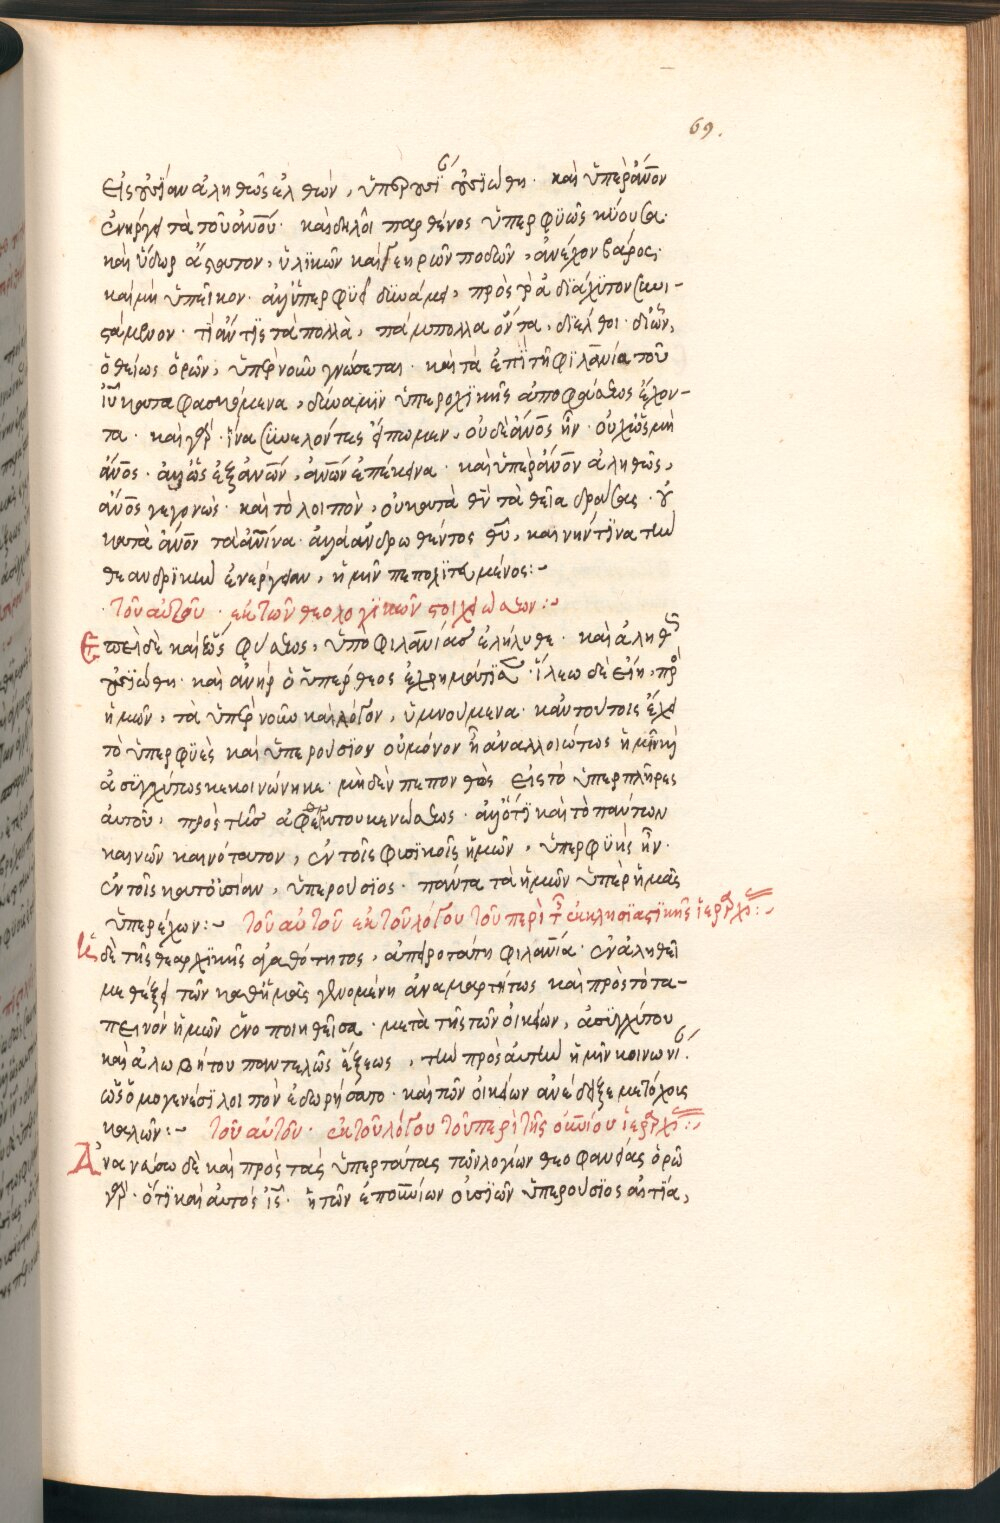 69.
εἰς οὐσίαν ἀληθῶς ἐλθὼν, ὑπὲρ οὐσίαν οὐσιώθη· καὶ ὑπὲρ ἄνον
ἐνήργει τὰ τοῦ ἀνου· καὶ δηλοῖ παρθένος ὑπερφυῶς κύουσα·
καὶ ὕδωρ ἄστατον, ὑλικῶν καὶ γεηρῶν ποδῶν, ἀνέχον βάρος·
καὶ μὴ ὑπεῖκον· ἀλλ' ὑπερφυεῖ δυνάμει, πρὸς τὸ ἀδιάχυτον συνι-
στάμενον· τί ἄν τις τὰ πολλὰ, πάμπολλα ὄντα, διέλθοι· δι' ὧν,
ὁ θείως ὁρῶν, ὑπὲρ νοῦν γνώσεται· καὶ τὰ ἐπὶ τῇ φιλανία τοῦ
ιυ καταφασκόμενα, δύναμιν ὑπεροχικῆς ἀποφάσεως ἔχον-
τα· καὶ γὰρ ἵνα συνελόντες εἴπωμεν, οὐδὲ ἄνος ἦν· οὐχ ὡς μὴ
ἄνος· ἀλλ' ὡς ἐξ ἀνων, ἀνων ἐπέκεινα· καὶ ὑπὲρ ἄνον ἀληθῶς,
ἄνος γεγονώς· καὶ τὸ λοιπὸν, οὐ κατὰ θν τὰ θεῖα δράσας· οὐ
κατὰ ἄνον τὰ ἀνινα· ἀλλὰ ἀνδρωθέντος θυ, καινήν τινα τὴν
θεανδρικὴν ἐνέργειαν, ἡμῖν πεπολιτευμένος:~
τοῦ αὐτοῦ· ἐκ τῶν θεολογικῶν στοιχειώσεων:~
Ἐπεὶ δὲ καὶ ἕως φύσεως, ὑπὸ φιλανίας ἐλήλυθε· καὶ ἀληθῶς
οὐσιώθη· καὶ ἀνὴρ ὁ ὑπέρθεος ἐχρημάτισεν· ἵλεω δὲ εἴη, πρὸς
ἡμῶν, τὰ ὑπὲρ νοῦν καὶ λόγον, ὑμνούμενα· κἀν τούτοις ἔχει
τὸ ὑπερφυὲς καὶ ὑπερούσιον οὐ μόνον ἧ ἀναλλοιώτως ἡμῖν καὶ
ἀσυγχύτως κεκοινώνηκε· μηδὲν πεπονθὼς εἰς τὸ ὑπερπλῆρες
αὐτοῦ, πρὸς τῆς ἀφθέγκτου κενώσεως· ἀλλ' ὅτι καὶ τὸ πάντων
καινῶν καινότατον, ἐν τοῖς φυσικοῖς ἡμῶν, ὑπερφυὴς ἦν·
ἐν τοῖς κατ' οὐσίαν, ὑπερούσιος· πάντα τὰ ἡμῶν ὑπὲρ ἡμᾶς
ὑπερέχων:~ τοῦ αὐτοῦ ἐκ τοῦ λόγου τοῦ περὶ τῆς ἐκκλησιαστικῆς ἱεραρχίας:~
Ἡ δὲ τῆς θεαρχικῆς ἀγαθότητος, ἀπειροτάτη φιλανία· ἐν ἀληθεῖ
μεθέξει τῶν καθ' ἡμᾶς γενομένη ἀναμαρτήτως καὶ πρὸς τὸ τα-
πεινὸν ἡμῶν ἑνοποιηθεῖσα· μετὰ τῆς τῶν οἰκείων, ἀσυγχύτου
καὶ ἀλωβήτου παντελῶς ἕξεως, τὴν πρὸς αὐτὴν ἡμῖν κοινωνίαν.
ὡς ὁμογενέσι λοιπὸν ἐδωρήσατο· καὶ τῶν οἰκείων ἀνέδειξε μετόχους
καλῶν:~ τοῦ αὐτοῦ· ἐκ τοῦ λόγου τοῦ περὶ τῆς οὐνίου ἱεραρχίας:~
Ἀνανεύσω δὲ καὶ πρὸς τὰς ὑπερτάτας τῶν λογίων θεοφανείας ὁρῶ
γὰρ· ὅτι καὶ αὐτὸς ις· ἡ τῶν ἐπουνίων οὐσιῶν ὑπερούσιος αἰτία,